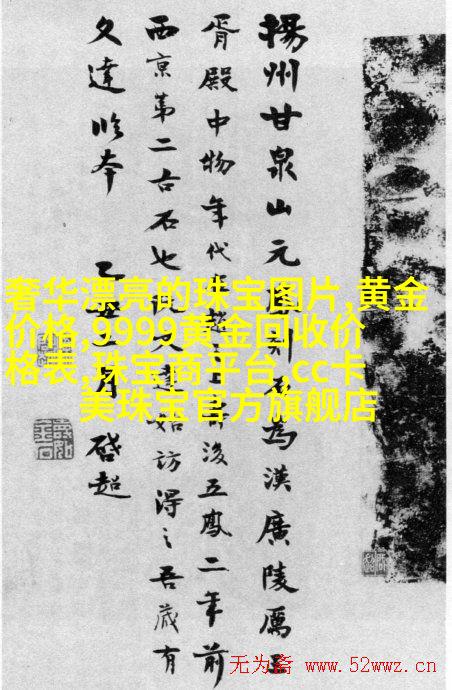 揚州甘泉山元刻石為漢廣陵厲王
胥殿中物年代後五鳳二年前
西京第二古石也文達始訪得之吾藏有
文達本 月 啓超
奢华漂亮的珠宝图片,黄金
价格,9999黄金回收价
格表,珠宝商平台,cc卡
美珠宝官方旗舰店
无为斋 www.52wwz.cn